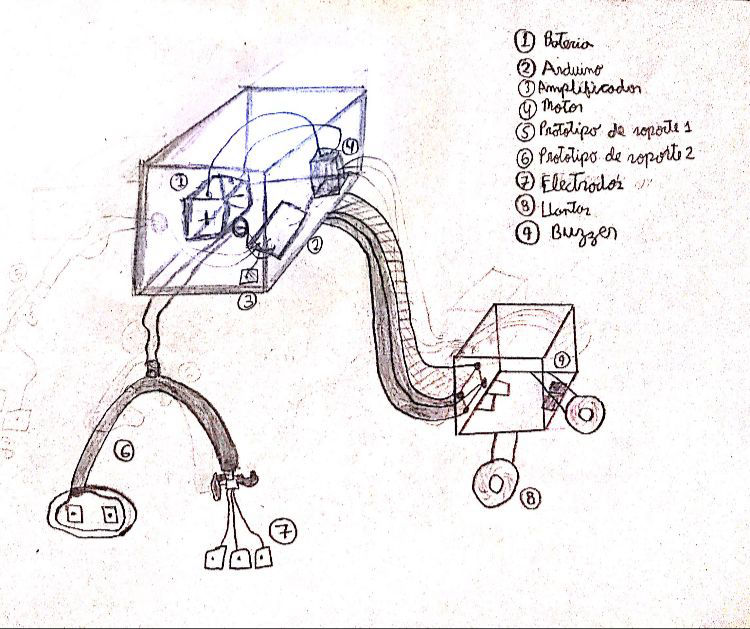 ① Bateria
② Arduino
③ Amplificador
④ Motor
⑤ Prototipo de soporte 1
⑥ Prototipo de soporte 2
⑦ Electrodos
⑧ Llantas
⑨ Buzzer
① ④
+ -
②
③
⑨
⑥
⑦ ⑧